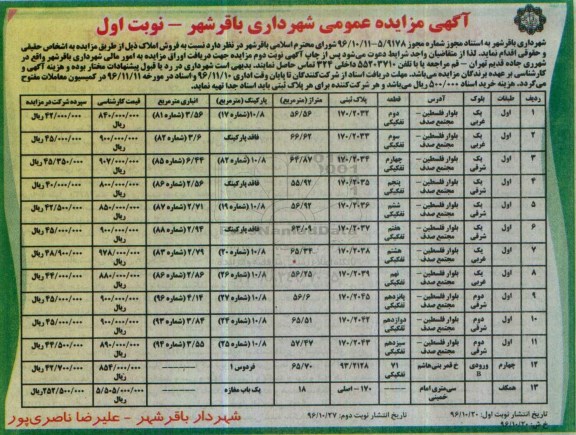 آگهی مزایده عمومی شهرداری باقرشهر – نوبت اول
شهرداری باقرشهر به استناد مجوز شماره مجوز ۵/۹۱۷۸–۹۶/۱۰/۱۱ شورای محترم اسلامی باقرشهر در نظر دارد نسبت به فروش املاک ذیل از طریق مزایده به اشخاص حقیقی
و حقوقی اقدام نماید. لذا از متقاضیان واجد شرایط دعوت می‌شود پس از چاپ آگهی نوبت دوم مزایده جهت دریافت اوراق مزایده به امور مالی شهرداری باقرشهر واقع در
شهرری جاده قدیم تهران – قم مراجعه یا با تلفن ۵۵۲۰۳۷۱۰ داخلی ۳۲۴ تماس حاصل نمایند. بدیهی است شهرداری در رد یا قبول پیشنهادات مختار بوده و هزینه آگهی و
کارشناسی بر عهده برندگان مزایده می‌باشد. مهلت دریافت اسناد از شرکت‌کنندگان تا پایان وقت اداری ۹۶/۱۱/۱۰ و اسناد در مورخه ۹۶/۱۱/۱۱ در کمیسیون معاملات مفتوح
می‌گردد. هزینه خرید اسناد ۵۰۰/۰۰۰ ریال می‌باشد و هر شرکت‌کننده برای هر پلاک ثبتی باید اسناد جدا تهیه نماید.
ردیف طبقات بلوک آدرس قطعه پلاک ثبتی متراژ (مترمربع) پارکینگ (مترمربع) انباری مترمربع قیمت کارشناسی سپرده شرکت در مزایده
۱ اول یک غربی بلوار فلسطین – مجتمع صدف دوم تفکیکی ۱۷۰/۲۰۳۲ ۵۶/۵۶ ۱۰/۸ (شماره ۱۷) ۳/۵۶ (شماره ۸۱) ۸۴۰/۰۰۰/۰۰۰ ریال ۴۲/۰۰۰/۰۰۰ ریال
۲ اول یک غربی بلوار فلسطین – مجتمع صدف سوم تفکیکی ۱۷۰/۲۰۳۳ ۶۶/۶۲ فاقد پارکینگ ۳/۶ (شماره ۸۲) ۹۰۰/۰۰۰/۰۰۰ ریال ۴۵/۰۰۰/۰۰۰ ریال
۳ اول یک شرقی بلوار فلسطین – مجتمع صدف چهارم تفکیکی ۱۷۰/۲۰۳۴ ۶۴/۸۷ ۱۰/۸ (شماره ۸۲) ۶/۴۴ (شماره ۸۵) ۹۰۷/۰۰۰/۰۰۰ ریال ۴۵/۳۵۰/۰۰۰ ریال
۴ اول یک شرقی بلوار فلسطین – مجتمع صدف پنجم تفکیکی ۱۷۰/۲۰۳۵ ۵۵/۹۲ فاقد پارکینگ ۲/۵۶ (شماره ۸۶) ۸۰۰/۰۰۰/۰۰۰ ریال ۴۰/۰۰۰/۰۰۰ ریال
۵ اول یک شرقی بلوار فلسطین – مجتمع صدف ششم تفکیکی ۱۷۰/۲۰۳۶ ۵۶/۹۲ ۱۰/۸ (شماره ۱۹) ۲/۷۱ (شماره ۸۷) ۸۵۰/۰۰۰/۰۰۰ ریال ۴۲/۵۰۰/۰۰۰ ریال
۶ اول یک غربی بلوار فلسطین – مجتمع صدف هفتم تفکیکی ۱۷۰/۲۰۳۷ ۶۳/۰۹ فاقد پارکینگ ۲/۹۴ (شماره ۸۸) ۹۰۰/۰۰۰/۰۰۰ ریال ۴۵/۰۰۰/۰۰۰ ریال
۷ اول یک شرقی بلوار فلسطین – مجتمع صدف هشتم تفکیکی ۱۷۰/۲۰۳۸ ۶۵/۳۴ ۱۰/۸ (شماره ۲۰) ۲/۷۹ (شماره ۸۳) ۹۷۸/۰۰۰/۰۰۰ ریال ۴۸/۹۰۰/۰۰۰ ریال
۸ اول یک غربی بلوار فلسطین – مجتمع صدف نهم تفکیکی ۱۷۰/۲۰۳۹ ۵۶/۲۵ ۱۰/۸ (شماره ۲۶) ۴/۸۶ (شماره ۸۶) ۸۸۰/۰۰۰/۰۰۰ ریال ۴۴/۰۰۰/۰۰۰ ریال
۹ اول دوم شرقی بلوار فلسطین – مجتمع صدف پانزدهم تفکیکی ۱۷۰/۲۰۴۵ ۵۶/۶ ۱۰/۸ (شماره ۲۷) ۴/۱۴ (شماره ۹۶) ۹۰۰/۰۰۰/۰۰۰ ریال ۴۵/۰۰۰/۰۰۰ ریال
۱۰ اول دوم شرقی بلوار فلسطین – مجتمع صدف دوازدهم تفکیکی ۱۷۰/۲۰۴۲ ۶۵/۵۱ ۱۰/۸ (شماره ۲۴) ۳/۸۴ (شماره ۹۳) ۹۰۰/۰۰۰/۰۰۰ ریال ۴۵/۰۰۰/۰۰۰ ریال
۱۱ اول دوم شرقی بلوار فلسطین – مجتمع صدف سیزدهم تفکیکی ۱۷۰/۲۰۴۳ ۵۷/۴۷ ۱۰/۸ (شماره ۲۵) ۳/۵۵ (شماره ۹۴) ۸۹۰/۰۰۰/۰۰۰ ریال ۴۴/۵۰۰/۰۰۰ ریال
۱۲ چهارم ورودی B خ قمر بنی هاشم ۷۱ تفکیکی ۹۳/۲۱۲۸ ۶۵/۷۰ فردوس ۱ ۸۵۴/۰۰۰/۰۰۰ ریال ۴۲/۷۰۰/۰۰۰ ریال
۱۳ همکف سی‌متری امام خمینی ۱۷۰ – اصلی ۱۸ یک باب مغازه ۵/۵۰۵/۰۰۰/۰۰۰ ریال ۲۵۲/۵۰۰/۰۰۰ ریال
تاریخ انتشار نوبت اول: ۹۶/۱۰/۲۰ تاریخ انتشار نوبت دوم: ۹۶/۱۰/۲۷
خ ش: ۹۶/۱۰/۲۰
شهردار باقرشهر – علیرضا ناصری‌پور